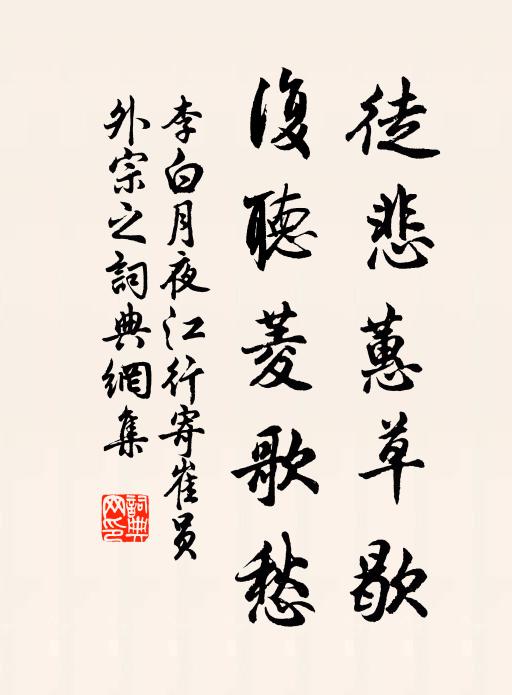 徒悲蕙草歇
復聽菱歌愁
李白月夜江行寄崔員
外宗之詞典網集
詞典
网印